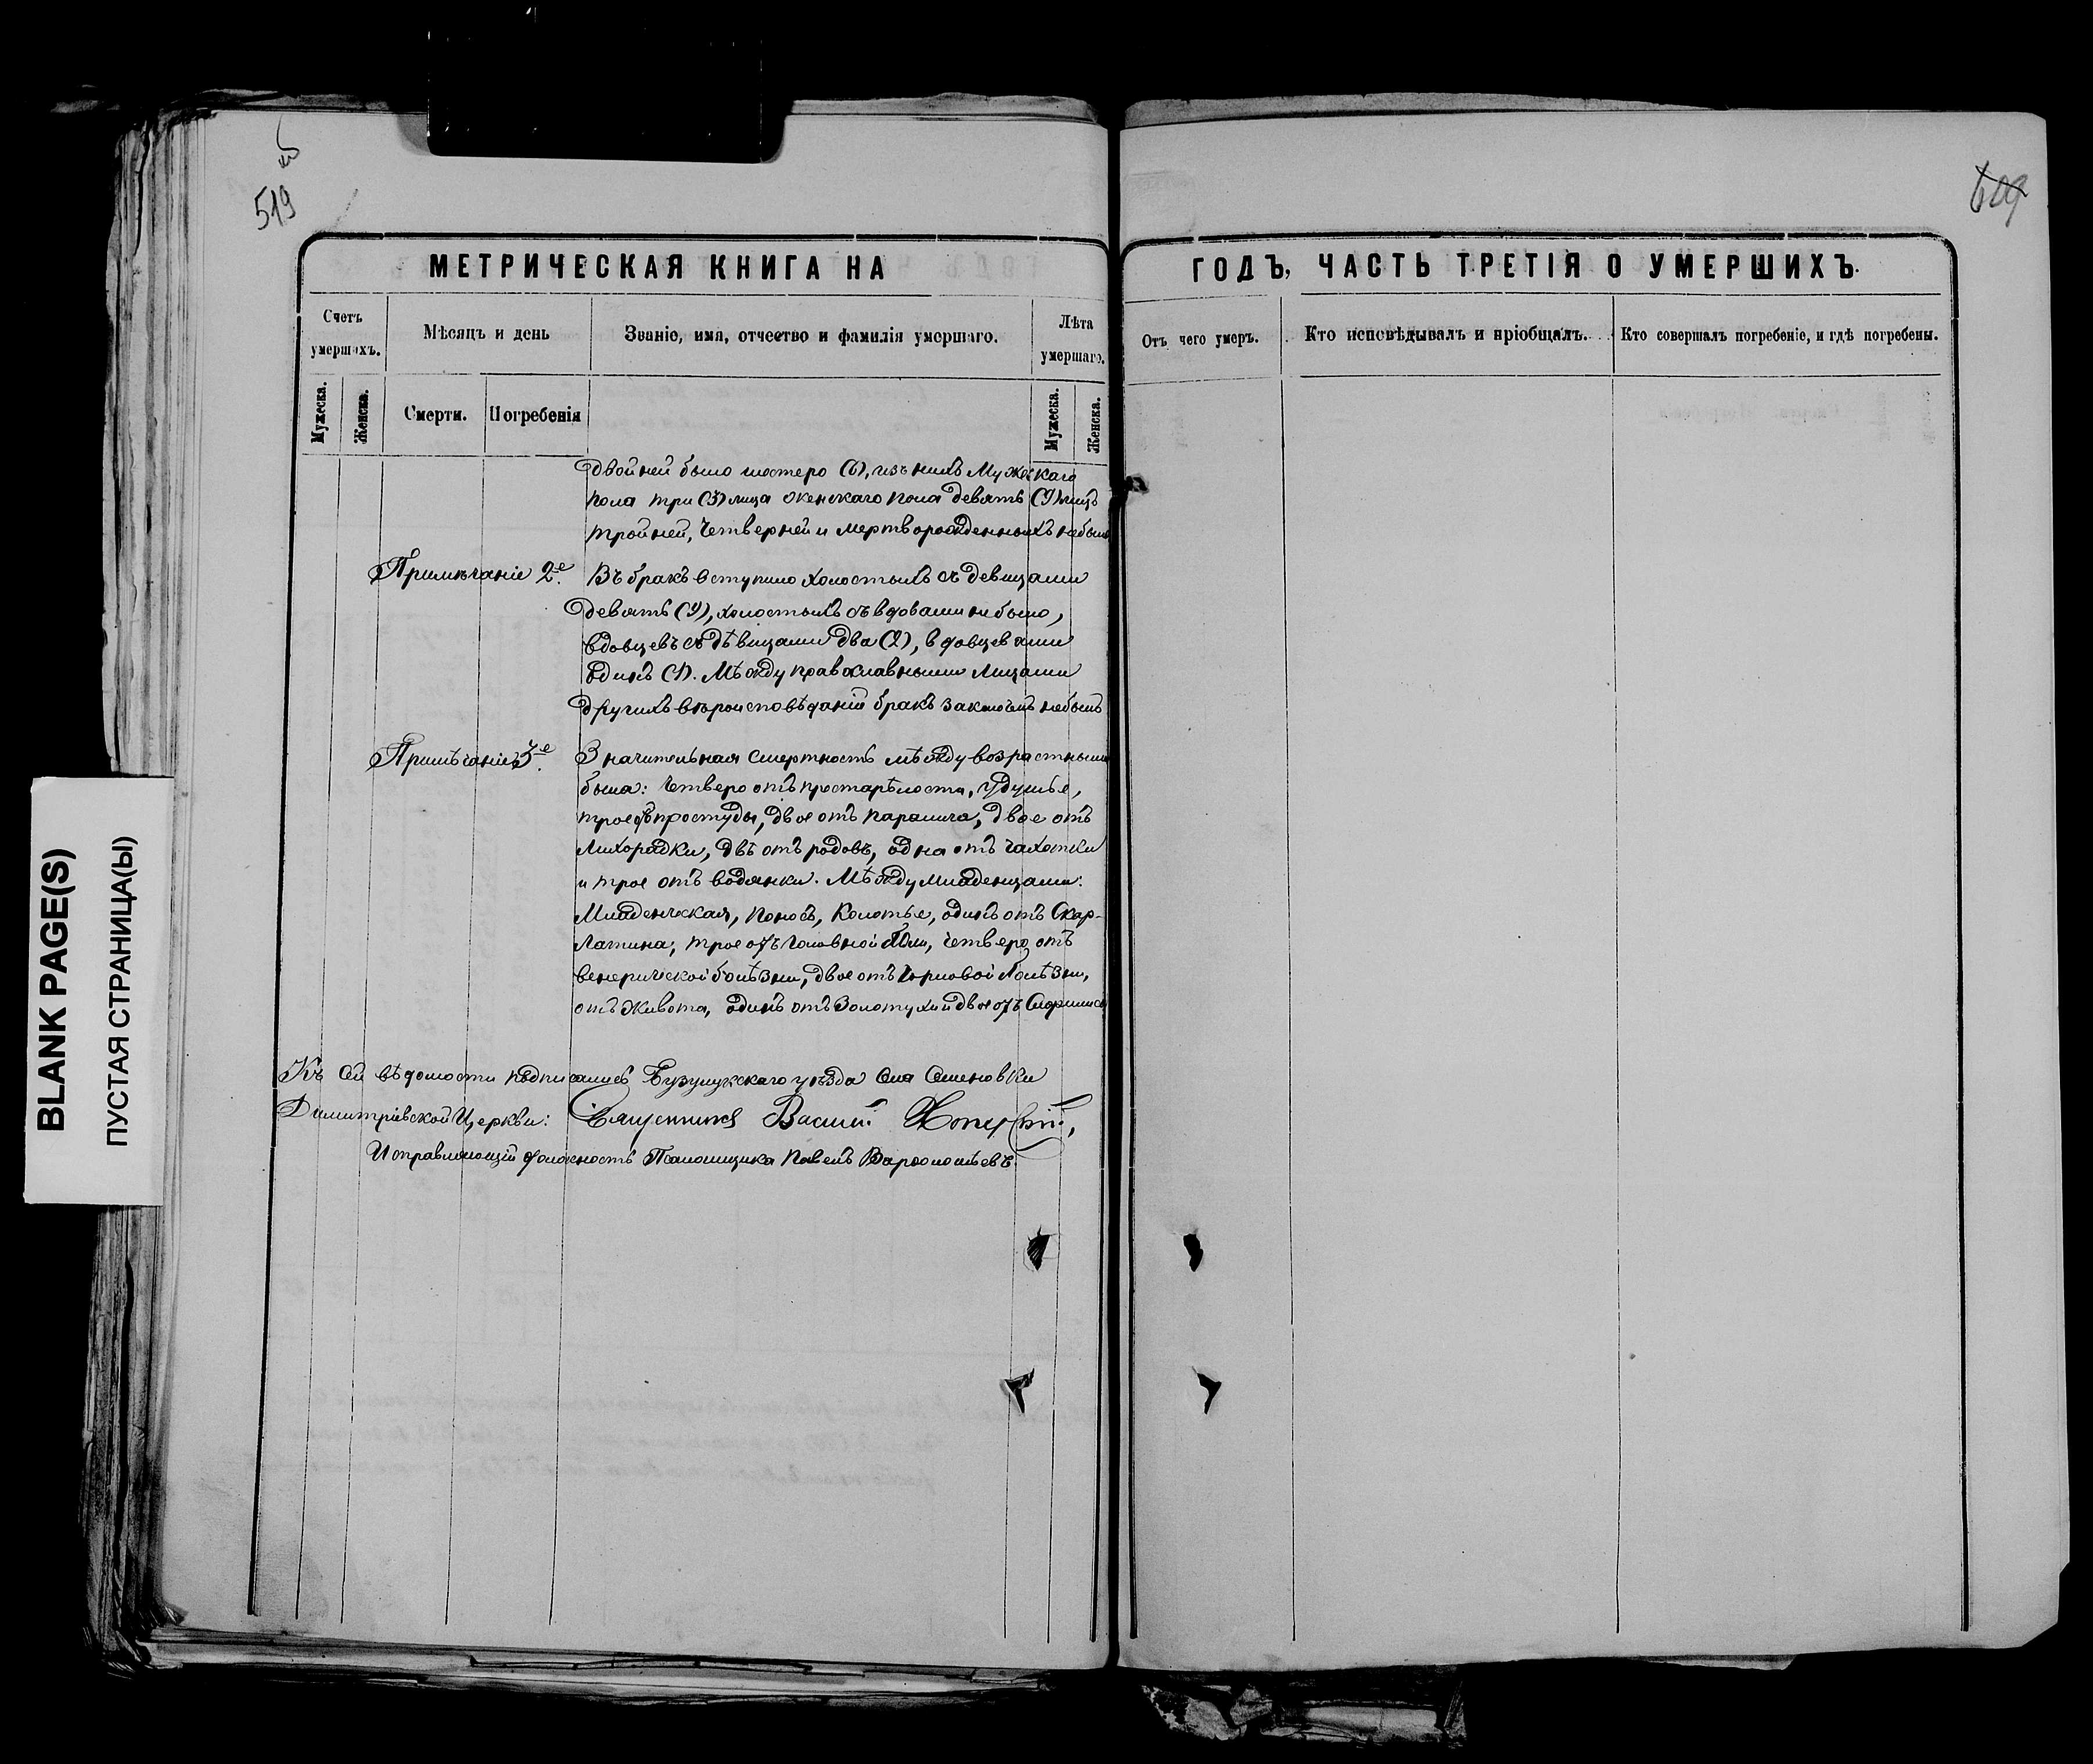 519
609
МЕТРИЧЕСКАЯ КНИГА НА
ГОДЪ, ЧАСТЬ ТРЕТІЯ О УМЕРШИХЪ.
Счетъ умершихъ.
Мѣсяцъ и день
Званіе, имя, отчество и фамилія умершаго.
Лѣта умершаго.
Отъ чего умеръ.
Кто исповѣдывалъ и пріобщалъ.
Кто совершалъ погребеніе, и гдѣ погребены.
Мужеска.
Женска.
Смерти.
Погребенія
Мужеска.
Женска.
двойней было шостеро (6), изъ нихъ Мужескаго
пола три (3) лица женскаго пола девять (9) лицъ
тройней, четверней и мертворожденныхъ небыло
Примѣчаніе 2е. Въ бракъ вступило холостыхъ съ девицами
девять (9), холостыхъ съ вдовами не было,
вдовцевъ съ дѣвицами два (2), вдовцевами
одинъ (1). Мѣжду православными лицами
другихъ вѣроисповѣданій бракъ заключенъ небылъ
Примѣчаніе 3е. Значительная смертность мѣжду возрастными
была: четверо отъ простарѣлости, удушье,
трое отъ простуды, двое отъ паралича, двое отъ
лихорадки, двѣ отъ родовъ, одна отъ чахотки
и трое отъ водянки. Мѣжду младенцами:
Младенческая, поносъ, колотье, одинъ отъ Скар-
латина, трое отъ головной боли, четверо отъ
венерической болѣзни, двое отъ горловой болѣзни,
отъ живота, одинъ отъ золотухи и двое отъ
Къ сей вѣдомости подписались Бузулукскаго уѣзда села Семеновки
Димитріевской Церкви: Священникъ Василій
Исправляющій должность Псаломщика Павелъ Варѳоломѣевъ.
BLANK PAGE(S)
ПУСТАЯ СТРАНИЦА(Ы)